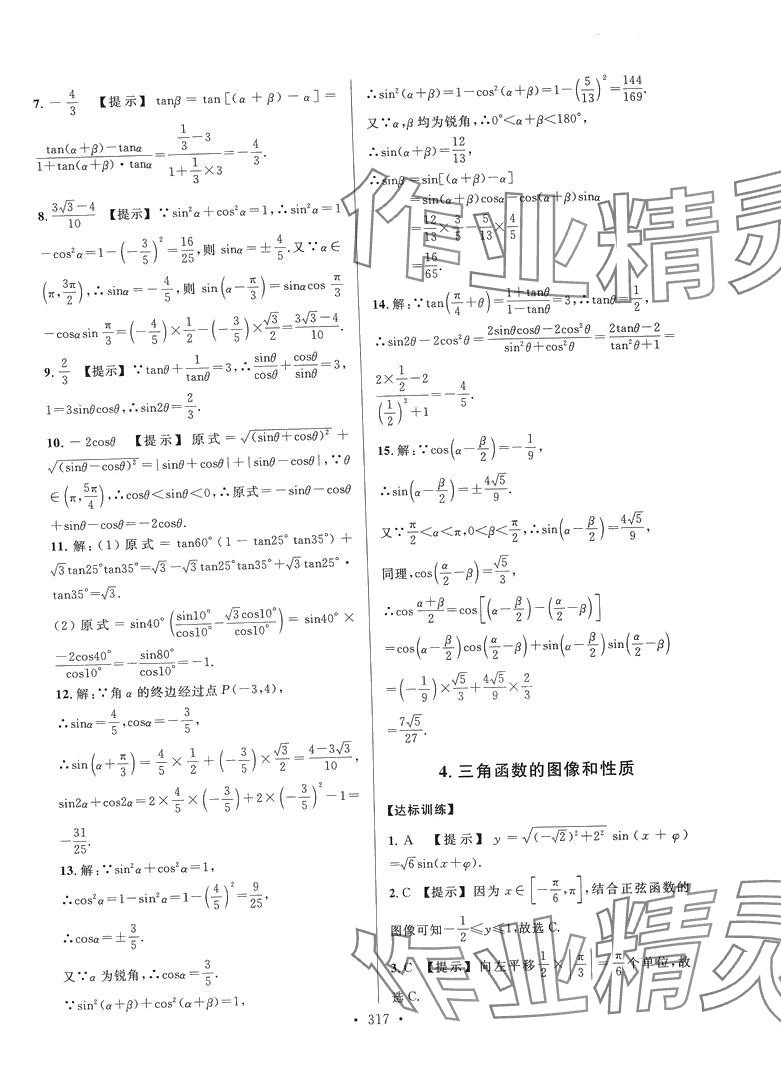 7. －4/3 【提示】 tanβ＝tan［(α＋β)－α］＝
(tan(α＋β)－tanα)/(1＋tan(α＋β)·tanα)＝(1/3－3)/(1＋1/3×3)＝－4/3.
8. (3√3－4)/10 【提示】∵sin²α＋cos²α＝1,∴sin²α＝1
－cos²α＝1－(－3/5)²＝16/25,则 sinα＝±4/5.又∵α∈
(π,3π/2),∴sinα＝－4/5,则 sin(α－π/3)＝sinαcos π/3
－cosαsin π/3＝(－4/5)×1/2－(－3/5)×√3/2＝(3√3－4)/10.
9. 2/3 【提示】∵tanθ＋1/tanθ＝3,∴sinθ/cosθ＋cosθ/sinθ＝3,
1＝3sinθcosθ,∴sin2θ＝2/3.
10. －2cosθ 【提示】原式＝√(sinθ＋cosθ)²＋
√(sinθ－cosθ)²＝|sinθ＋cosθ|＋|sinθ－cosθ|,∵θ
∈(π,5π/4),∴cosθ＜sinθ＜0,∴原式＝－sinθ－cosθ
＋sinθ－cosθ＝－2cosθ.
11. 解:(1)原式＝tan60°(1－tan25°tan35°)＋
√3tan25°tan35°＝√3－√3tan25°tan35°＋√3tan25°·
tan35°＝√3.
(2)原式＝sin40°(sin10°/cos10°－√3cos10°/cos10°)＝sin40°×
－2cos40°/cos10°＝－sin80°/cos10°＝－1.
12. 解:∵角α的终边经过点P(－3,4),
∴sinα＝4/5,cosα＝－3/5,
∴sin(α＋π/3)＝4/5×1/2＋(－3/5)×√3/2＝(4－3√3)/10,
sin2α＋cos2α＝2×4/5×(－3/5)＋2×(－3/5)²－1＝
－31/25.
13. 解:∵sin²α＋cos²α＝1,
∴cos²α＝1－sin²α＝1－(4/5)²＝9/25,
∴cosα＝±3/5.
又∵α为锐角,∴cosα＝3/5.
∵sin²(α＋β)＋cos²(α＋β)＝1,
∴sin²(α＋β)＝1－cos²(α＋β)＝1－(5/13)²＝144/169.
又∵α,β均为锐角,∴0°＜α＋β＜180°,
∴sin(α＋β)＝12/13,
∴sinβ＝sin[(α＋β)－α]
＝sin(α＋β)cosα－cos(α＋β)sinα
＝12/13×3/5－5/13×4/5
＝16/65.
14. 解:∵tan(π/4＋θ)＝(1＋tanθ)/(1－tanθ)＝3,∴tanθ＝1/2,
∴sin2θ－2cos²θ＝(2sinθcosθ－2cos²θ)/(sin²θ＋cos²θ)＝(2tanθ－2)/(tan²θ＋1)＝
(2×1/2－2)/((1/2)²＋1)＝－4/5.
15. 解:∵cos(α－β/2)＝－1/9,
∴sin(α－β/2)＝±4√5/9.
又∵π/2＜α＜π,0＜β＜π/2,∴sin(α－β/2)＝4√5/9,
同理,cos(α/2－β)＝√5/3,
∴cos (α＋β)/2＝cos[(α－β/2)－(α/2－β)]
＝cos(α－β/2)cos(α/2－β)＋sin(α－β/2)sin(α/2－β)
＝(－1/9)×√5/3＋4√5/9×2/3
＝7√5/27.
4. 三角函数的图像和性质
【达标训练】
1. A 【提示】 y＝√((－√2)²＋2²) sin(x＋φ)
＝√6sin(x＋φ).
2. C 【提示】因为 x∈[－π/6,π],结合正弦函数的
图像可知－1/2≤y≤1,故选C.
3. C 【提示】向左平移1/2×|π/3|＝π/6个单位,故
选C.
· 317 ·
作业精灵
作业精灵